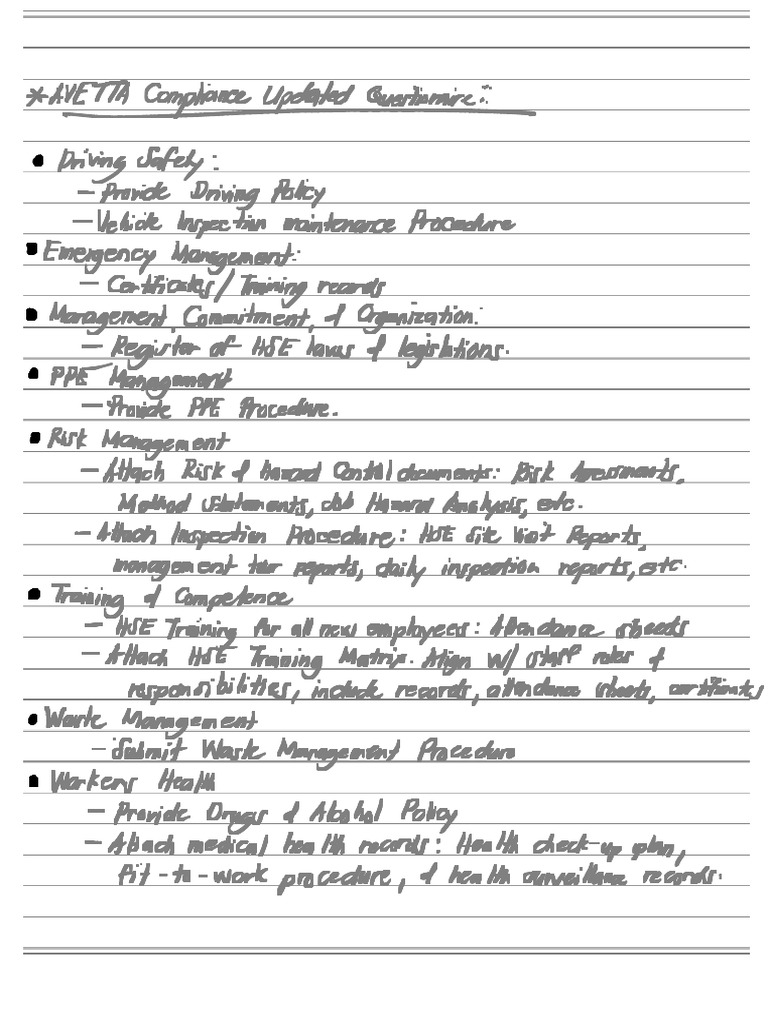 * AVETTA Compliance Updated Questionnaire:
• Driving Safety:
- Provide Driving Policy
- Vehicle Inspection maintenance Procedure
• Emergency Management:
- Certificates / Training records
• Management, Commitment, & Organization:
- Register of HSE laws & legislations.
• PPE Management
- Provide PPE Procedure.
• Risk Management
- Attach Risk & Hazard Control documents: Risk Assessments,
Method Statements, Job Hazard Analysis, etc.
- Attach Inspection Procedure: HSE Site Visit Reports,
management tour reports, daily inspection reports, etc.
• Training & Competence
- HSE Training for all new employees: Attendance sheets
- Attach HSE Training Matrix. Align w/ staff roles &
responsibilities, include records, attendance sheets, certificates
• Waste Management
- Submit Waste Management Procedure
• Workers Health
- Provide Drugs & Alcohol Policy
- Attach medical health records: Health check-up plan,
fit-to-work procedure, & health surveillance records.